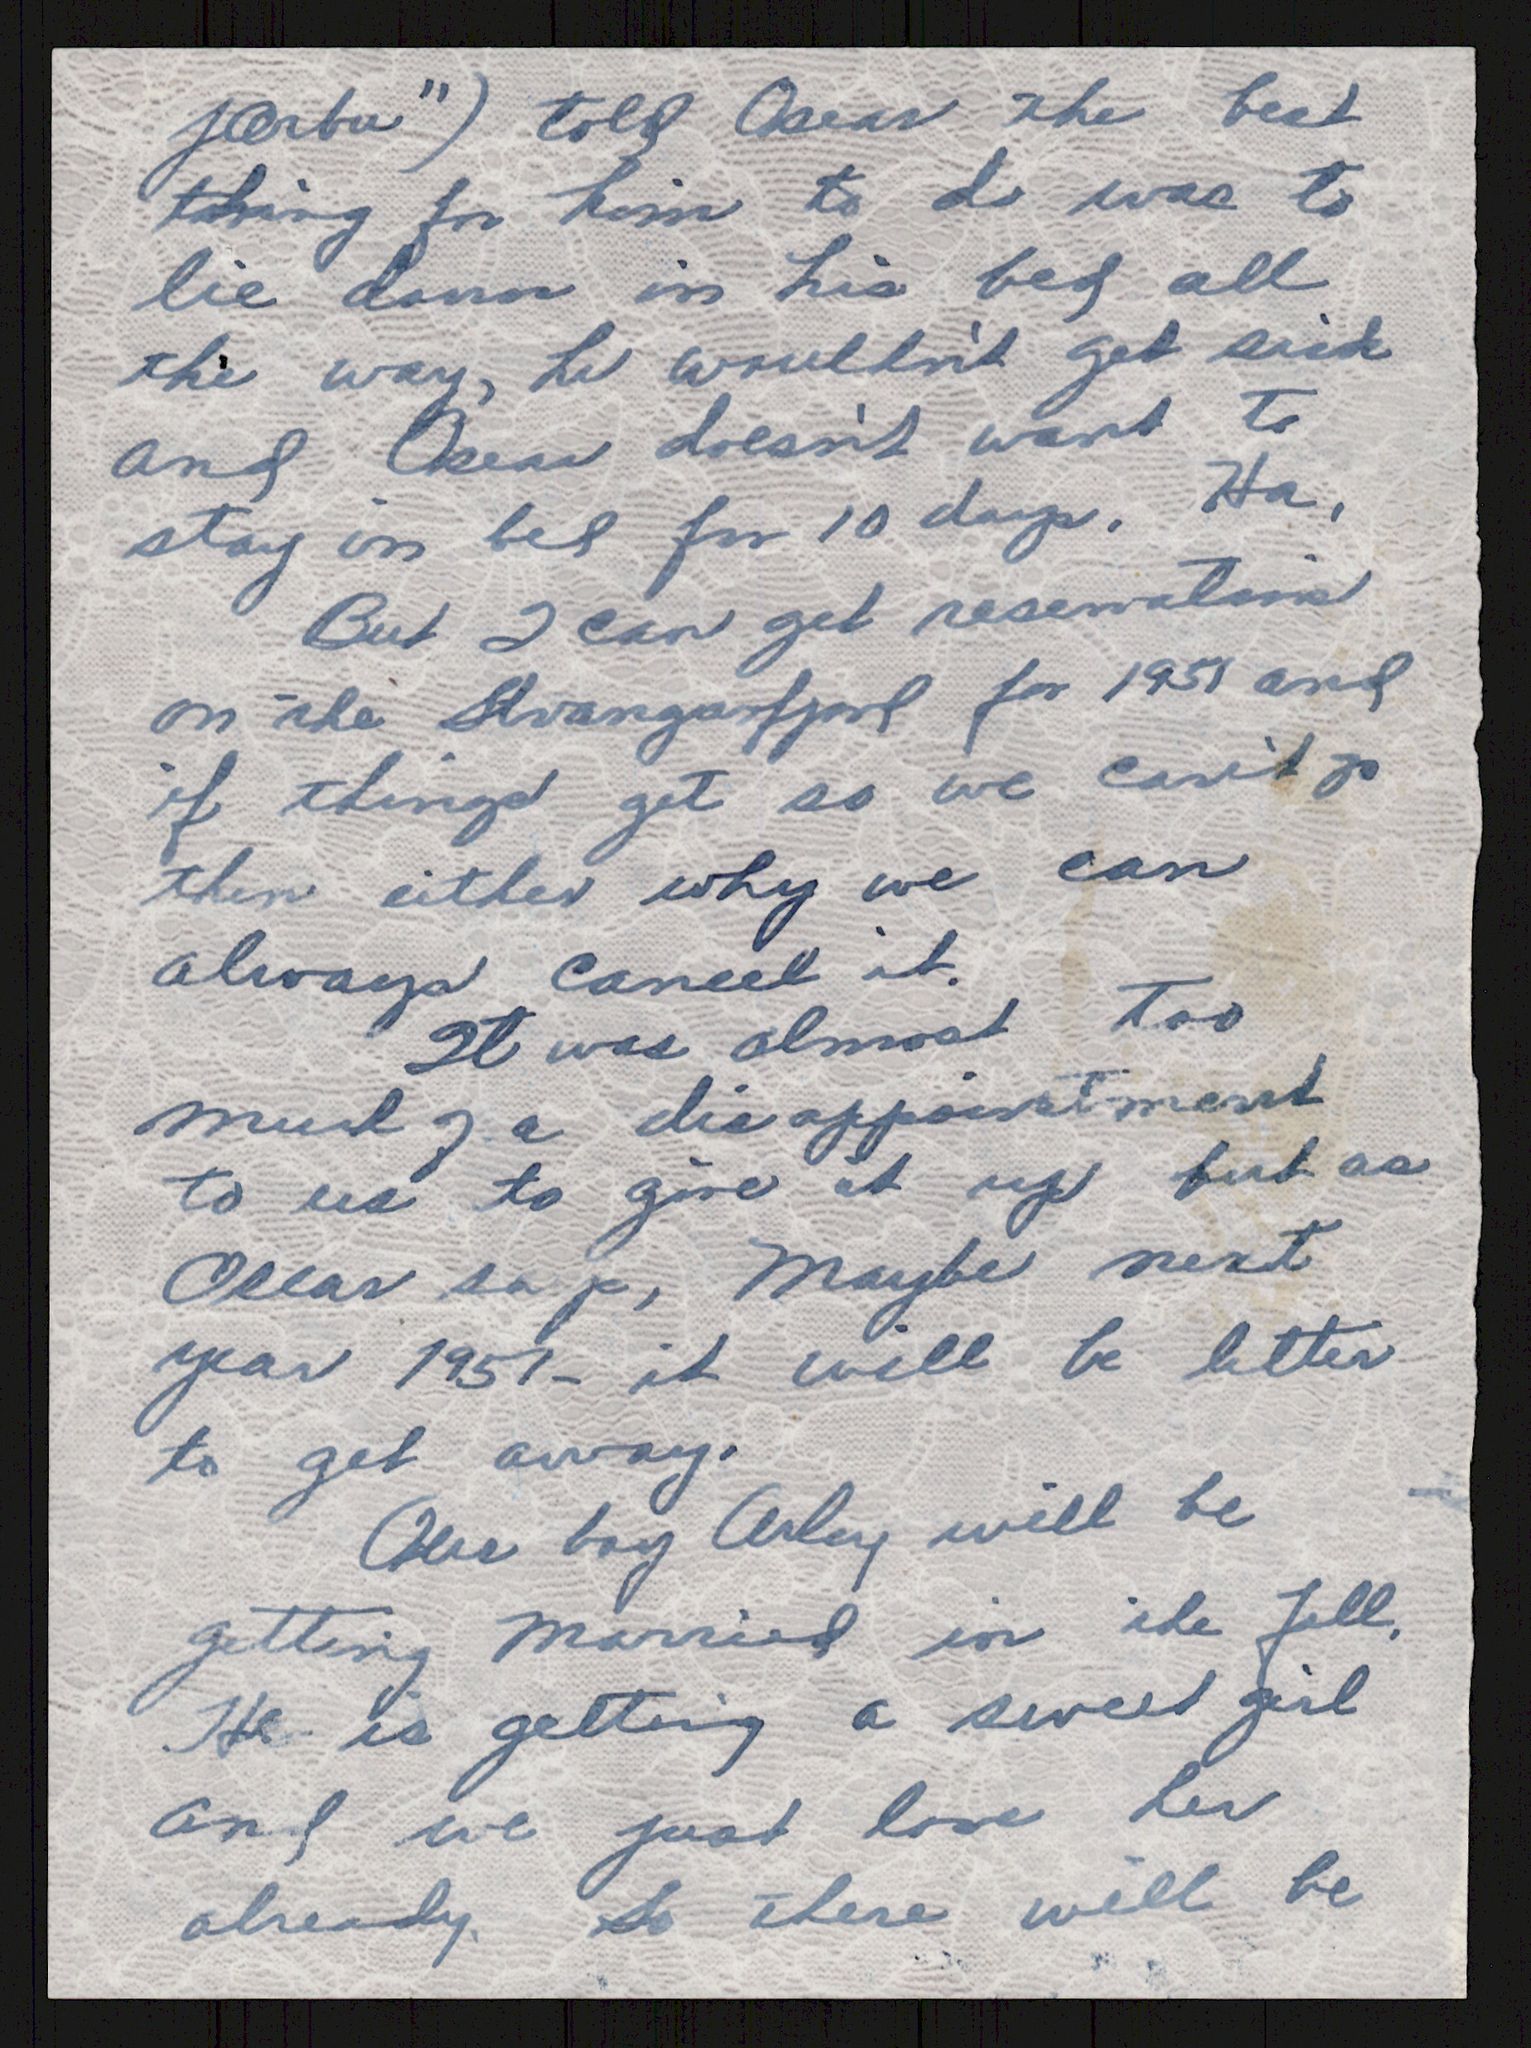 told Oscar the best
thing for him to do was to
lie down in his bed all
the way, he wouldn't get sick
and Oscar doesn't want to
stay in bed for 10 days. Ha,
But I can get reservations
on the Stavangerfjord for 1951 and
if things get so we can't go
then either why we can
always cancel it.
It was almost too
much of a disappointment
to us to give it up but as
Oscar says, Maybe next
year 1951 - it will be better
to get away.
Our boy Arley will be
getting married in the fall.
He is getting a sweet girl
and we just love her
already. So there will be